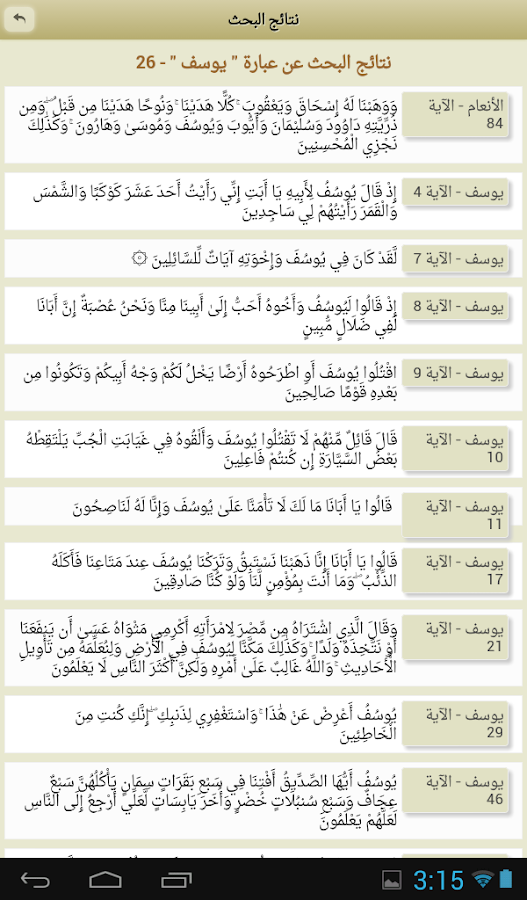 نتائج البحث
نتائج البحث عن عبارة " يوسف " - 26
الأنعام - الآية
84
وَوَهَبْنَا لَهُ إِسْحَاقَ وَيَعْقُوبَ ۚ كُلًّا هَدَيْنَا ۚ وَنُوحًا هَدَيْنَا مِن قَبْلُ ۖ وَمِن
ذُرِّيَّتِهِ دَاوُودَ وَسُلَيْمَانَ وَأَيُّوبَ وَيُوسُفَ وَمُوسَىٰ وَهَارُونَ ۚ وَكَذَٰلِكَ
نَجْزِي الْمُحْسِنِينَ
يوسف - الآية 4
إِذْ قَالَ يُوسُفُ لِأَبِيهِ يَا أَبَتِ إِنِّي رَأَيْتُ أَحَدَ عَشَرَ كَوْكَبًا وَالشَّمْسَ
وَالْقَمَرَ رَأَيْتُهُمْ لِي سَاجِدِينَ
يوسف - الآية 7
لَّقَدْ كَانَ فِي يُوسُفَ وَإِخْوَتِهِ آيَاتٌ لِّلسَّائِلِينَ ۞
يوسف - الآية 8
إِذْ قَالُوا لَيُوسُفُ وَأَخُوهُ أَحَبُّ إِلَىٰ أَبِينَا مِنَّا وَنَحْنُ عُصْبَةٌ إِنَّ أَبَانَا
لَفِي ضَلَالٍ مُّبِينٍ
يوسف - الآية 9
اقْتُلُوا يُوسُفَ أَوِ اطْرَحُوهُ أَرْضًا يَخْلُ لَكُمْ وَجْهُ أَبِيكُمْ وَتَكُونُوا مِن
بَعْدِهِ قَوْمًا صَالِحِينَ
يوسف - الآية
10
قَالَ قَائِلٌ مِّنْهُمْ لَا تَقْتُلُوا يُوسُفَ وَأَلْقُوهُ فِي غَيَابَتِ الْجُبِّ يَلْتَقِطْهُ
بَعْضُ السَّيَّارَةِ إِن كُنتُمْ فَاعِلِينَ
يوسف - الآية
11
قَالُوا يَا أَبَانَا مَا لَكَ لَا تَأْمَنَّا عَلَىٰ يُوسُفَ وَإِنَّا لَهُ لَنَاصِحُونَ
يوسف - الآية
17
قَالُوا يَا أَبَانَا إِنَّا ذَهَبْنَا نَسْتَبِقُ وَتَرَكْنَا يُوسُفَ عِندَ مَتَاعِنَا فَأَكَلَهُ
الذِّئْبُ ۖ وَمَا أَنتَ بِمُؤْمِنٍ لَّنَا وَلَوْ كُنَّا صَادِقِينَ
يوسف - الآية
21
وَقَالَ الَّذِي اشْتَرَاهُ مِن مِّصْرَ لِامْرَأَتِهِ أَكْرِمِي مَثْوَاهُ عَسَىٰ أَن يَنفَعَنَا
أَوْ نَتَّخِذَهُ وَلَدًا ۚ وَكَذَٰلِكَ مَكَّنَّا لِيُوسُفَ فِي الْأَرْضِ وَلِنُعَلِّمَهُ مِن تَأْوِيلِ
الْأَحَادِيثِ ۚ وَاللَّهُ غَالِبٌ عَلَىٰ أَمْرِهِ وَلَٰكِنَّ أَكْثَرَ النَّاسِ لَا يَعْلَمُونَ
يوسف - الآية
29
يُوسُفُ أَعْرِضْ عَنْ هَٰذَا ۚ وَاسْتَغْفِرِي لِذَنبِكِ ۖ إِنَّكِ كُنتِ مِنَ
الْخَاطِئِينَ
يوسف - الآية
46
يُوسُفُ أَيُّهَا الصِّدِّيقُ أَفْتِنَا فِي سَبْعِ بَقَرَاتٍ سِمَانٍ يَأْكُلُهُنَّ سَبْعٌ
عِجَافٌ وَسَبْعِ سُنبُلَاتٍ خُضْرٍ وَأُخَرَ يَابِسَاتٍ لَّعَلِّي أَرْجِعُ إِلَى النَّاسِ
لَعَلَّهُمْ يَعْلَمُونَ
3:15